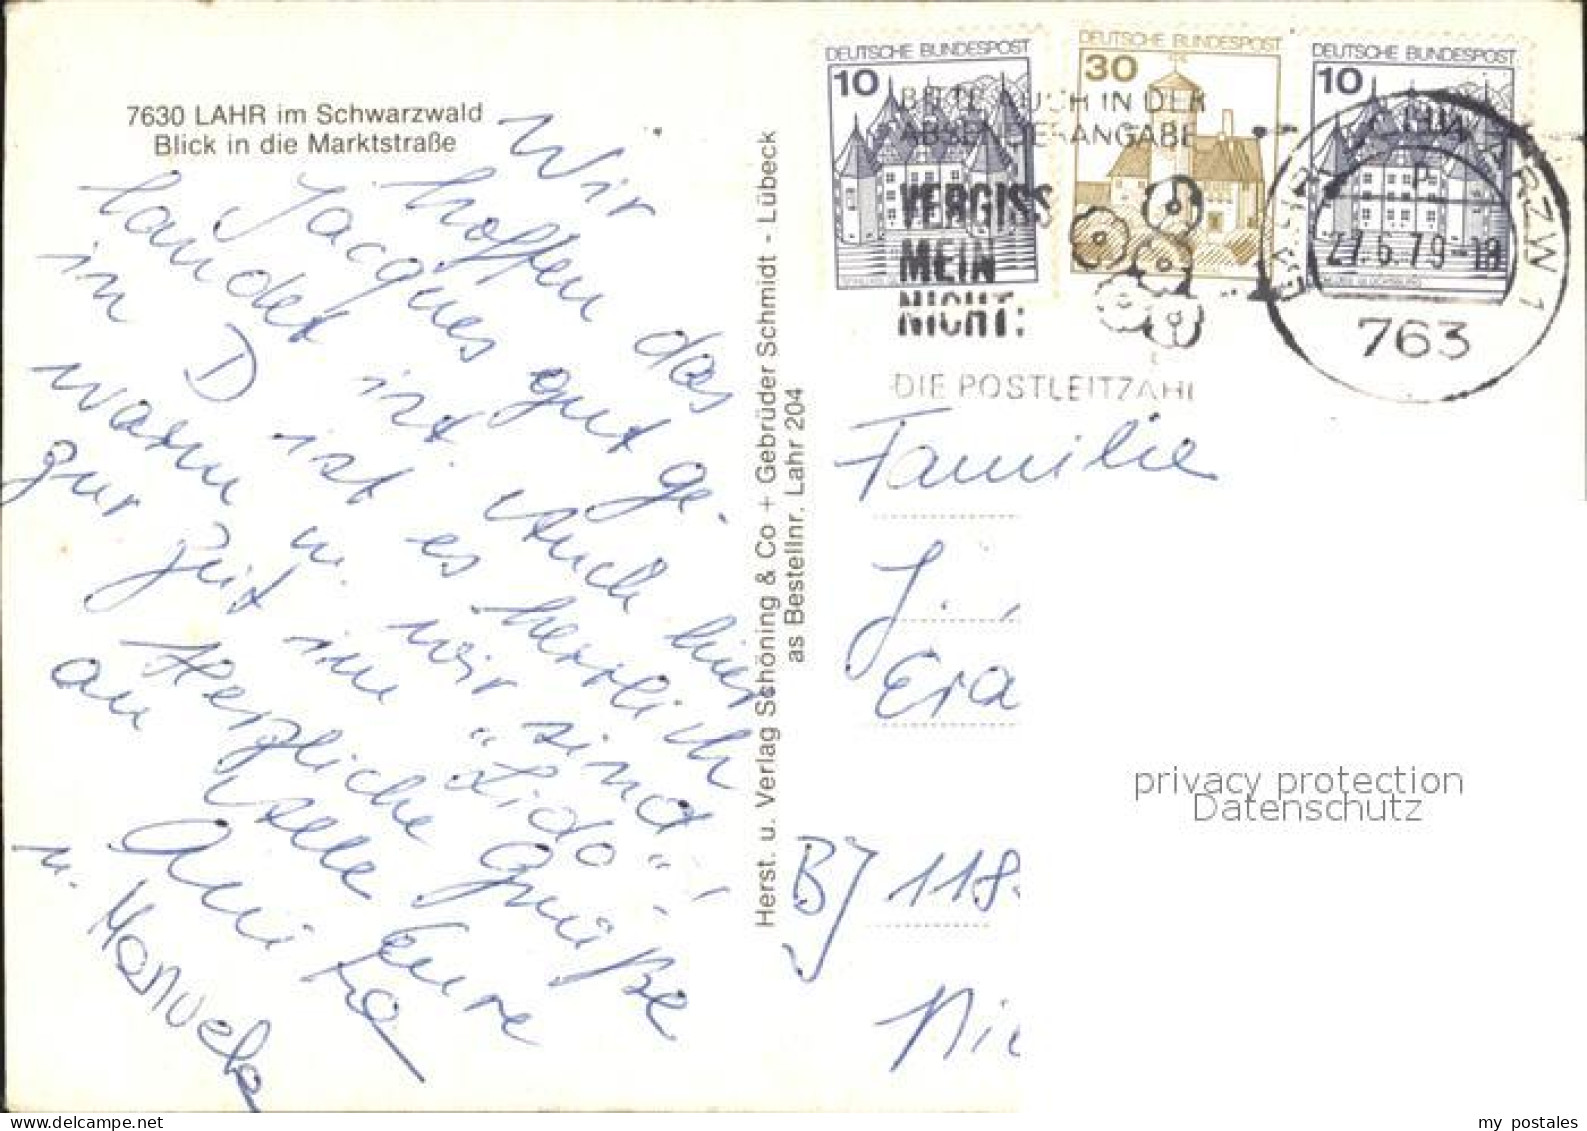 7630 LAHR im Schwarzwald
Blick in die Marktstraße
Wir
hoffen das
Jacques gut ge-
landet ist. Auch hier
in D ist es herrlich
warm u. wir sind
zur Zeit im "Lido"!
Herzliche Grüße
an alle Eure
Anita
u. Manuela
Herst. u. Verlag Schöning & Co + Gebrüder Schmidt - Lübeck
as Bestellnr. Lahr 204
DEUTSCHE BUNDESPOST
10
DEUTSCHE BUNDESPOST
30
DEUTSCHE BUNDESPOST
10
BITTE AUCH IN DER
ABSENDERANGABE
VERGISS
MEIN
NICHT:
DIE POSTLEITZAHL
LAHR, SCHWARZW 1
27.6.79-18
763
Familie
Era
BJ 118
Ni
privacy protection
Datenschutz
my postales